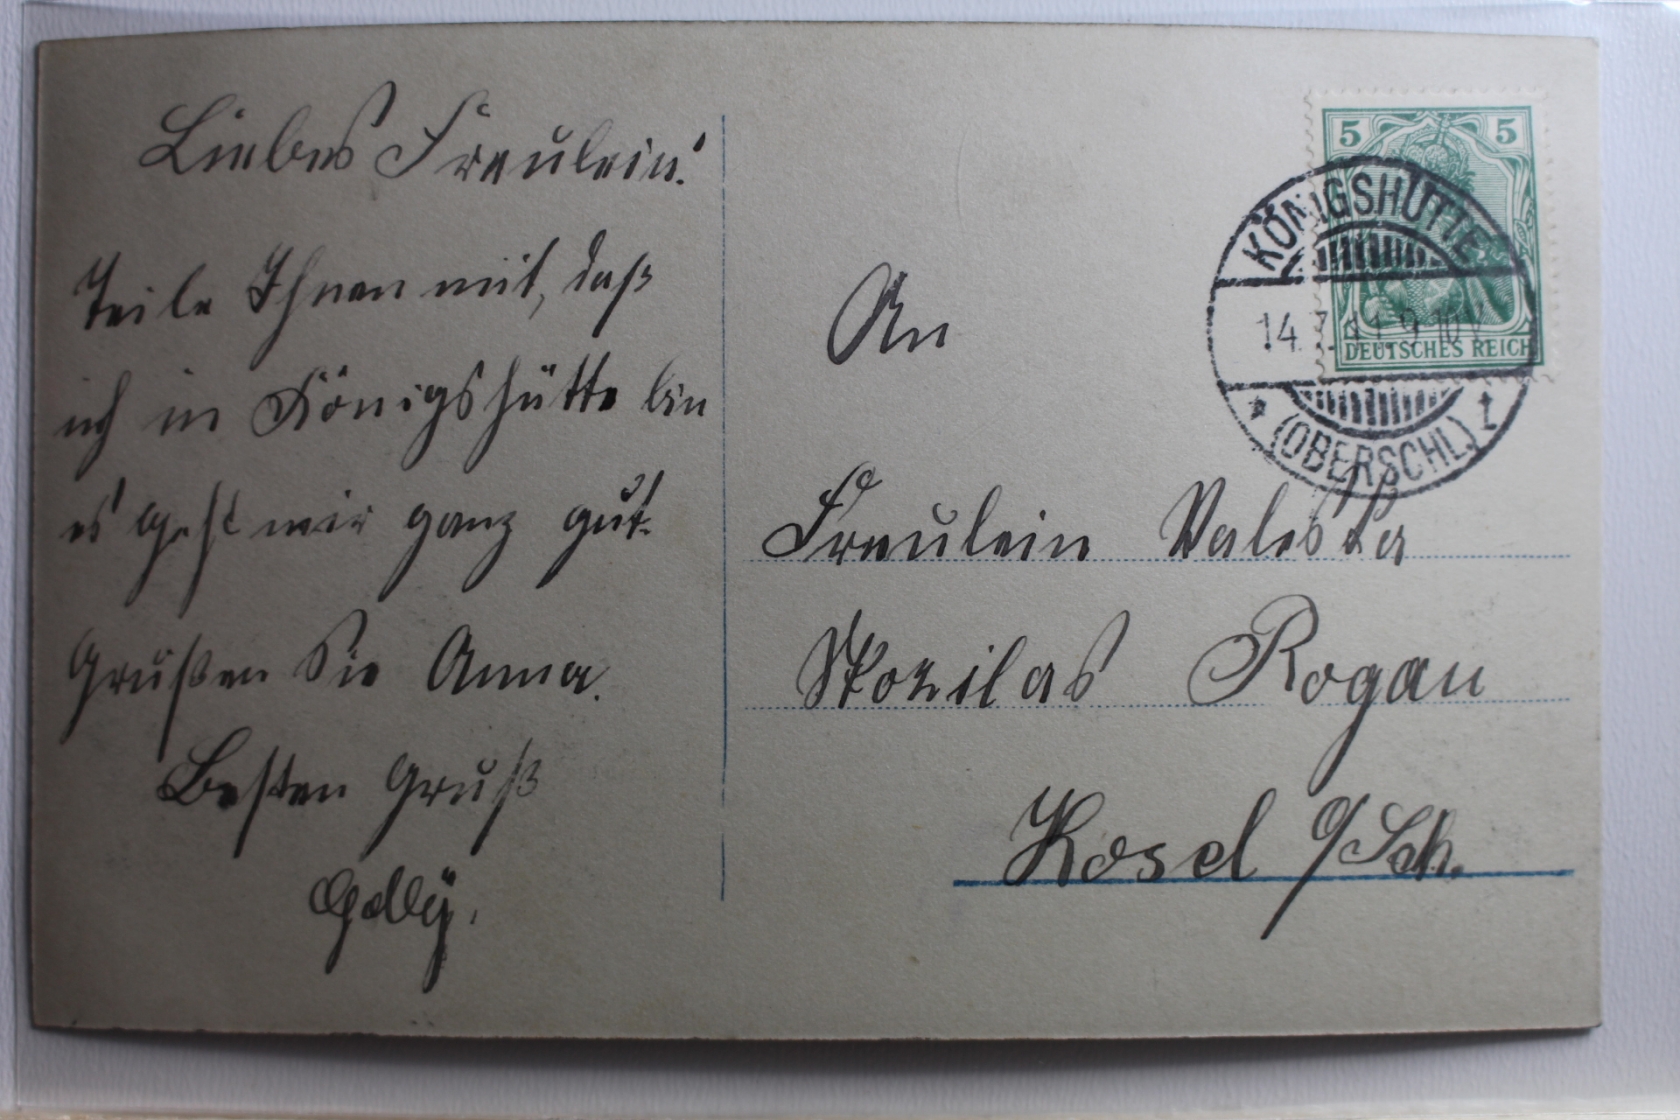 Liebes Fräulein!
Teile Ihnen mit, daß
ich in Königshütte bin
es geht mir ganz gut.
Grüßen Sie Anna.
Besten Gruß
An
Fräulein Valeska
Rogau
Kosel O/Sch.
5 5
DEUTSCHES REICH
KÖNIGSHÜTTE
14.7.11.9-10V.
* (OBERSCHL.) t